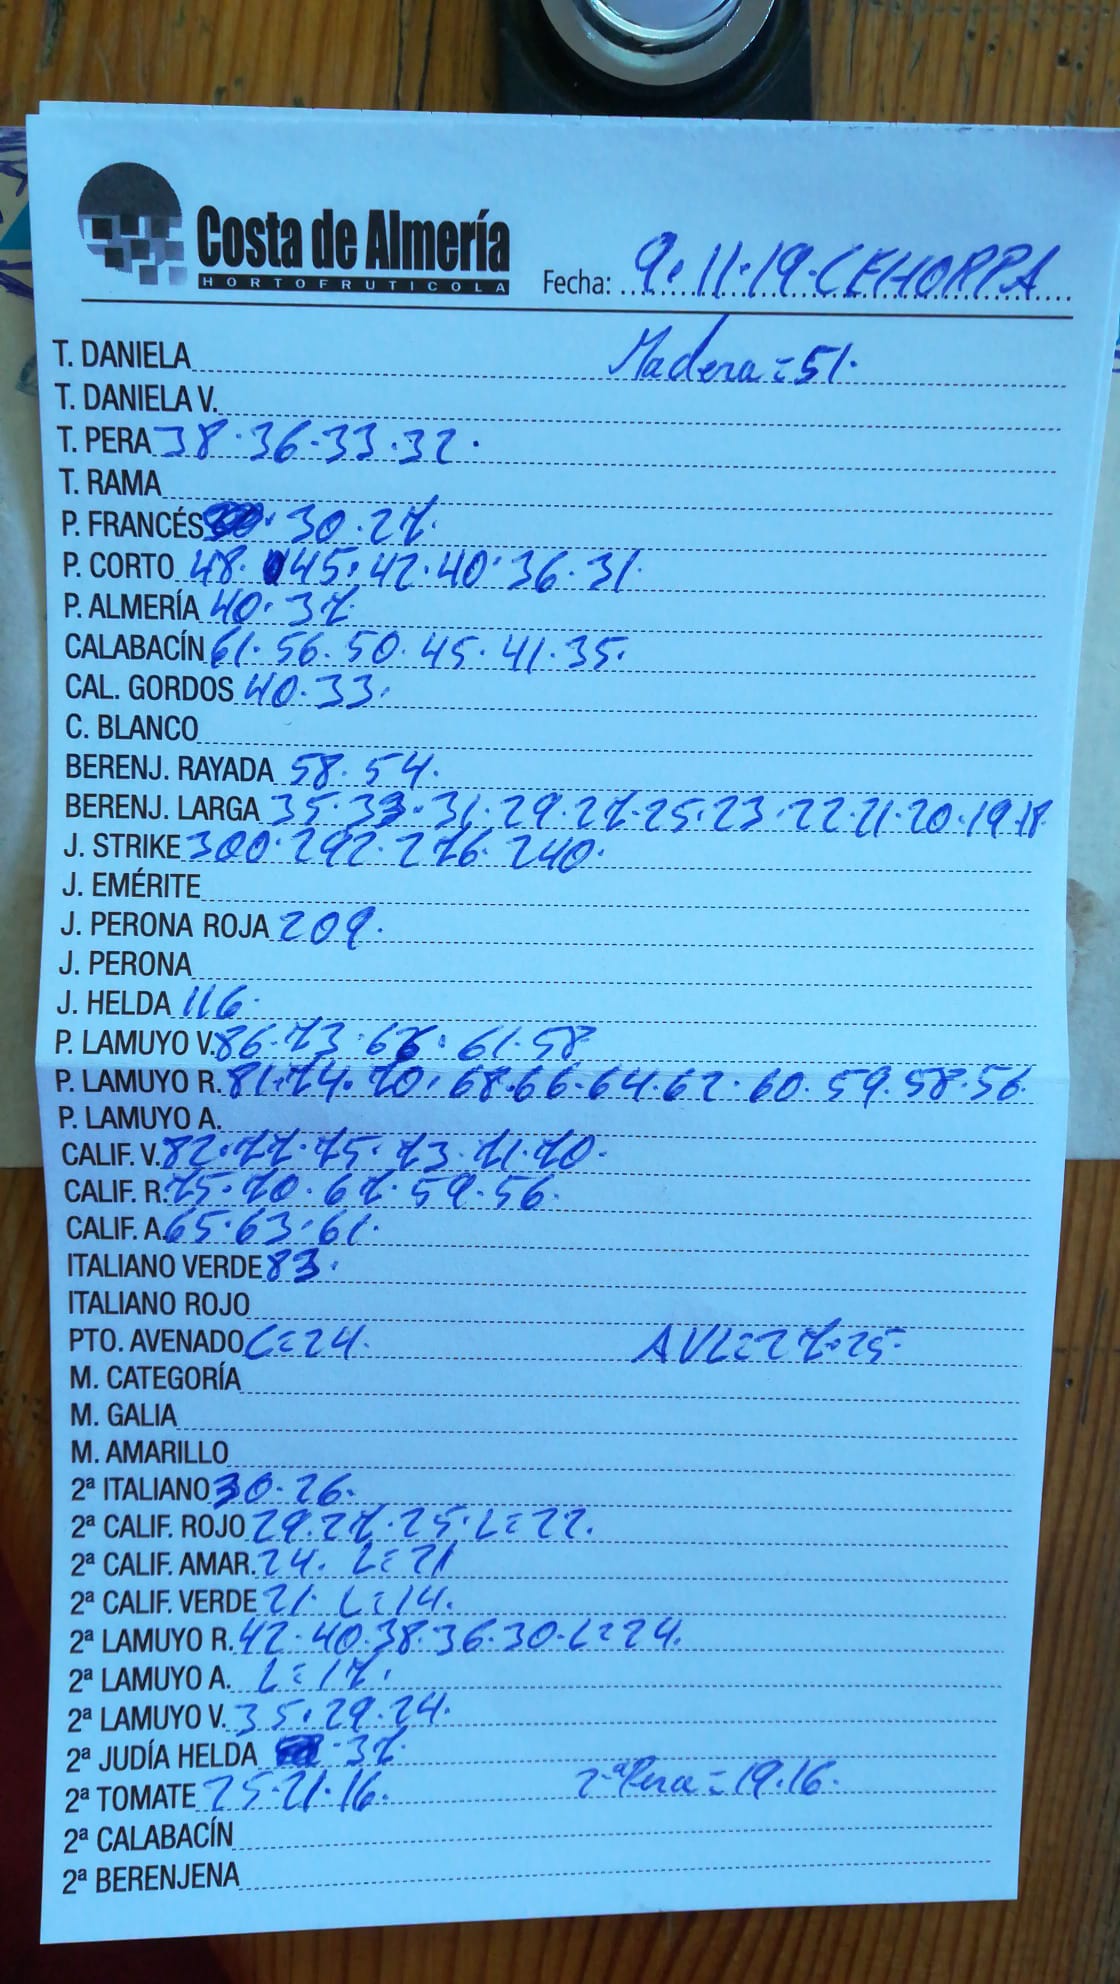 Costa de Almería
HORTOFRUTICOLA
Fecha: 9.11.19.CEHORPA
T. DANIELA Madera=51.
T. DANIELA V.
T. PERA 38.36.33.32.
T. RAMA
P. FRANCÉS 30.27.
P. CORTO 48.45.42.40.36.31.
P. ALMERÍA 40.37.
CALABACÍN 61.56.50.45.41.35.
CAL. GORDOS 40.33.
C. BLANCO
BERENJ. RAYADA 58.54.
BERENJ. LARGA 35.33.31.29.27.25.23.22.21.20.19.18.
J. STRIKE 300.292.276.240.
J. EMÉRITE
J. PERONA ROJA 209.
J. PERONA
J. HELDA 116.
P. LAMUYO V. 86.73.67.61.58
P. LAMUYO R. 81.74.70.68.66.64.62.60.59.58.56.
P. LAMUYO A.
CALIF. V. 82.77.75.73.71.70.
CALIF. R. 75.70.67.59.56.
CALIF. A. 65.63.61.
ITALIANO VERDE 83.
ITALIANO ROJO
PTO. AVENADO L=24. AVL=27.25.
M. CATEGORÍA
M. GALIA
M. AMARILLO
2ª ITALIANO 30.26.
2ª CALIF. ROJO 29.27.25.L=22.
2ª CALIF. AMAR. 24. L=21
2ª CALIF. VERDE 21. L=14.
2ª LAMUYO R. 42.40.38.36.30.L=24.
2ª LAMUYO A. L=17.
2ª LAMUYO V. 35.29.24.
2ª JUDÍA HELDA 37.
2ª TOMATE 25.21.16. 2ªPera=19.16.
2ª CALABACÍN
2ª BERENJENA